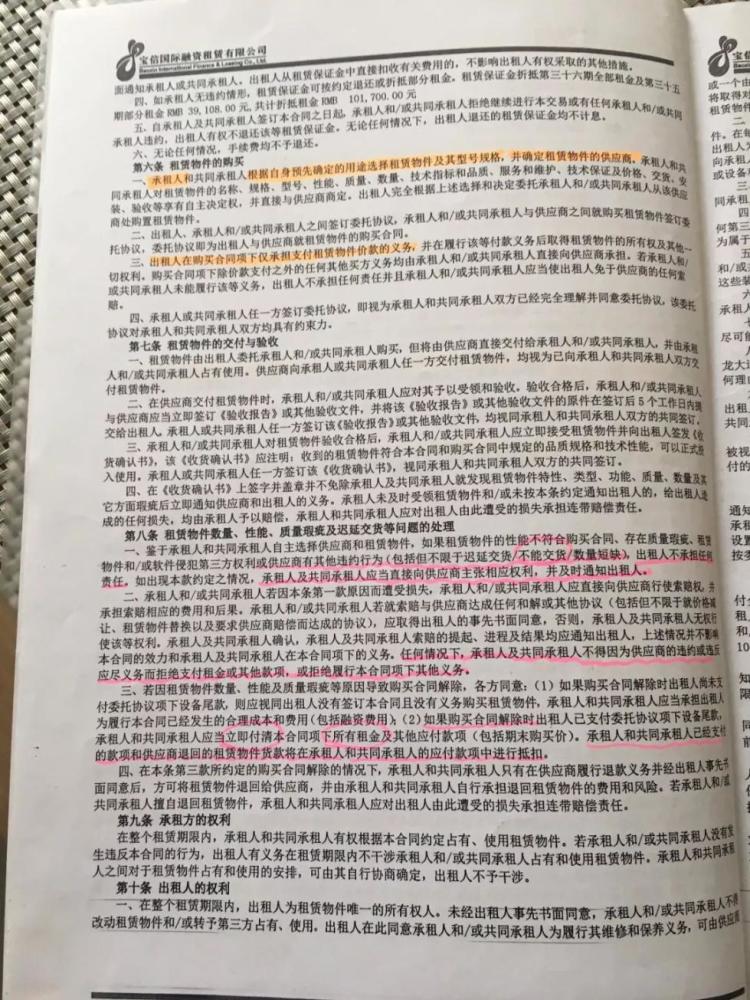 宝信国际融资租赁有限公司
Baoxin International Finance & Leasing Co., Ltd.
面通知承租人或共同承租人。出租人从租赁保证金中直接扣收有关费用的，不影响出租人有权采取的其他措施。
四、如承租人无违约情形，租赁保证金可按约定退还或折抵部分租金。租赁保证金折抵第三十六期全部租金及第三十五
期部分租金 RMB 39,108.00 元,共计折抵租金 RMB 101,700.00 元
五、自承租人及共同承租人签订本合同之日起，承租人和/或共同承租人拒绝继续进行本交易或有任何承租人和/或共同
承租人违约，出租人有权不退还该等租赁保证金。无论任何情况下，出租人退还的租赁保证金均不计息。
六、无论任何情况，手续费均不予退还。
第六条 租赁物件的购买
一、承租人和共同承租人根据自身预先确定的用途选择租赁物件及其型号规格，并确定租赁物件的供应商。承租人和共
同承租人对租赁物件的名称、规格、型号、性能、质量、数量、技术指标和品质、服务和维护、技术保证及价格、交货、安
装、验收等享有自主决定权，并直接与供应商商定。出租人完全根据上述选择和决定委托承租人和/或共同承租人从该供应
商处购置租赁物件。
二、出租人、承租人和/或共同承租人之间签订委托协议，承租人和/或共同承租人与供应商之间就购买租赁物件签订委
托协议，委托协议即为出租人与供应商就租赁物件的购买合同。
三、出租人在购买合同项下仅承担支付租赁物件价款的义务，并在履行该等付款义务后取得租赁物件的所有权及其他一
切权利。购买合同项下除价款支付之外的任何其他买方义务均由承租人和/或共同承租人直接向供应商承担。若承租人和/
或共同承租人未能履行该等义务，出租人不承担任何责任并且承租人和/或共同承租人应当使出租人免于供应商的任何索
赔。
四、承租人或共同承租人任一方签订委托协议，即视为承租人和共同承租人双方已经完全理解并同意委托协议，该委托
协议对承租人和共同承租人双方均具有约束力。
第七条 租赁物件的交付与验收
一、租赁物件由出租人委托承租人和/或共同承租人购买，但将由供应商直接交付给承租人和/或共同承租人，并由承租
人和/或共同承租人占有使用。供应商向承租人或共同承租人任一方交付租赁物件，均视为已向承租人和共同承租人双方交
付租赁物件。
二、在供应商交付租赁物件时，承租人和/或共同承租人应对其予以受领和验收。验收合格后，承租人和/或共同承租人
与供应商应当立即签订《验收报告》或其他验收文件，并将该《验收报告》或其他验收文件的原件在签订后 5 个工作日内提
交给出租人。承租人或共同承租人任一方签订该《验收报告》或其他验收文件，均视同承租人和共同承租人双方的共同签订。
三、承租人和/或共同承租人对租赁物件验收合格后，承租人和/或共同承租人应立即接受租赁物件并向出租人签发《收
货确认书》，该《收货确认书》应注明：收到的租赁物件符合本合同和购买合同中规定的品质规格和技术性能，可以正式投
入使用。承租人或共同承租人任一方签订该《收货确认书》，视同承租人和共同承租人双方的共同签订。
四、在《收货确认书》上签字并盖章并不免除承租人及共同承租人就发现租赁物件特性、类型、功能、质量、数量及其
它方面瑕疵后立即通知供应商和出租人的义务。承租人未及时受领租赁物件和/或未按本条约定通知出租人的，给出租人造
成的任何损失，均由承租人予以赔偿，承租人和共同承租人应对出租人由此遭受的损失承担连带赔偿责任。
第八条 租赁物件数量、性能、质量瑕疵及迟延交货等问题的处理
一、鉴于承租人和共同承租人自主选择供应商和租赁物件，如果租赁物件的性能不符合购买合同、存在质量瑕疵、租赁
物件和/或软件侵犯第三方权利或供应商有其他违约行为(包括但不限于迟延交货/不能交货/数量短缺)，出租人不承担任何
责任。如出现本款约定之情况，承租人及共同承租人应当直接向供应商主张相应权利，并及时通知出租人。
二、承租人和/或共同承租人若因本条第一款原因而遭受损失，承租人和/或共同承租人应直接向供应商行使索赔权，并
承担索赔相应的费用和后果。承租人和/或共同承租人若就索赔与供应商达成任何和解或其他协议（包括但不限于就价格减
让、租赁物件替换以及要求供应商赔偿而达成的协议），应取得出租人的事先书面同意，否则，承租人及共同承租人无权行
使该等权利。承租人及共同承租人确认，承租人及共同承租人索赔的提起、进程及结果均应通知出租人，上述情况并不影响
本合同的效力和承租人及共同承租人在本合同项下的义务。任何情况下，承租人及共同承租人不得因为供应商的违约或违反
应尽义务而拒绝支付租金或其他款项，或拒绝履行本合同项下其他义务。
三、若因租赁物件数量、性能及质量瑕疵等原因导致购买合同解除，各方同意：（1）如果购买合同解除时出租人尚未支
付委托协议项下设备尾款，则应视同出租人没有签订本合同且没有义务购买租赁物件，承租人和共同承租人应当承担出租人
为履行本合同已经发生的合理成本和费用（包括融资费用）；（2）如果购买合同解除时出租人已支付委托协议项下设备尾款，
承租人和共同承租人应当立即付清本合同项下所有租金及其他应付款项（包括期末购买价）。承租人和共同承租人已经支付
的款项和供应商退回的租赁物件货款将在承租人和共同承租人的应付款项中进行抵扣。
四、在本条第三款所约定的购买合同解除的情况下，承租人和共同承租人只有在供应商履行退款义务并经出租人事先书
面同意后，方可将租赁物件退回给供应商，并由承租人和共同承租人自行承担退回租赁物件的费用和风险。若承租人和/或
共同承租人擅自退回租赁物件，承租人和共同承租人应对出租人由此遭受的损失承担连带赔偿责任。
第九条 承租方的权利
在整个租赁期限内，承租人和共同承租人有权根据本合同约定占有、使用租赁物件。若承租人和/或共同承租人没有发
生违反本合同的行为，出租人有义务在租赁期限内不干涉承租人和/或共同承租人占有和使用租赁物件。承租人和共同承租
人之间对于租赁物件占有和使用的安排，可由其自行协商确定，出租人不予干涉。
第十条 出租人的权利
一、在整个租赁期限内，出租人为租赁物件唯一的所有权人。未经出租人事先书面同意，承租人和/或共同承租人不得
改动租赁物件和/或转予第三方占有、使用。出租人在此同意承租人和/或共同承租人为履行其维修和保养义务，可由供应商